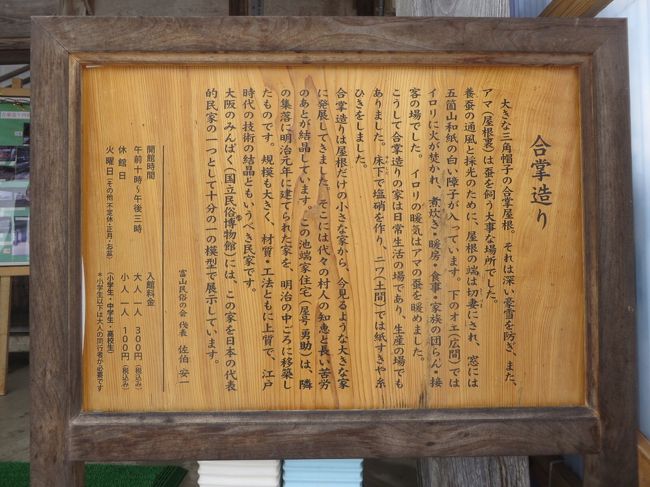 合掌造り
大きな三角帽子の合掌屋根。それは深い豪雪を防ぎ、また、
アマ(屋根裏)は蚕を飼う大事な場所でした。
養蚕の通風と採光のために、屋根の端は切妻にされ、窓には
五箇山和紙の白い障子が入っています。下のオエ(広間)では
イロリに火が焚かれ、煮炊き・暖房・食事・家族の団らん・接
客の場でした。イロリの暖気はアマの蚕を暖めました。
こうして合掌造りの家は日常生活の場であり、生産の場でも
ありました。床下で塩硝を作り、ニワ(土間)では紙すきや糸
ひきをしました。
合掌造りは屋根だけの小さな家から、今見るような大きな家
に発展してきました。そこには代々の村人の知恵と長い苦労
のあとが結晶しています。この池端家住宅(屋号勇助)は、隣
の集落に明治元年に建てられた家を、明治の中ごろに移築し
たものです。規模も大きく、材質・工法ともに上質で、江戸
時代の技術の結晶ともいうべき民家です。
大阪のみんぱく(国立民俗博物館)には、この家を日本の代表
的民家の一つとして十分の一の模型で展示しています。
富山民俗の会 代表 佐伯安一
開館時間
午前十時〜午後三時
休館日
火曜日(その他 不定休・正月・お盆)
入館料金
大人 一人 300円(税込み)
小人 一人 100円(税込み)
(小学生・中学生・高校生)
*小学生以下は大人の同行者が必要です